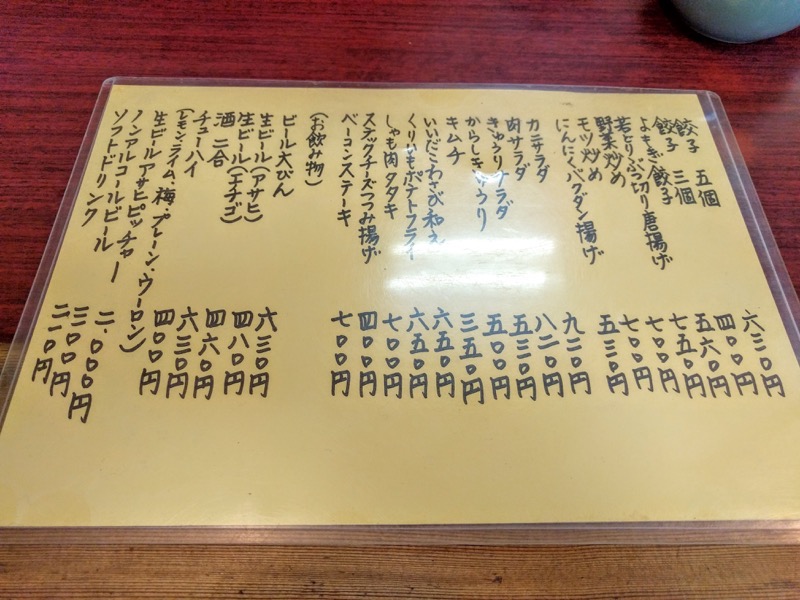 餃子 五個 六三〇円
餃子 三個 四〇〇円
よもぎ餃子 五六〇円
若とりぶつ切り唐揚げ 七五〇円
野菜炒め 七〇〇円
モツ炒め 七〇〇円
にんにくバクダン揚げ 五三〇円
カニサラダ 九二〇円
肉サラダ 八二〇円
きゅうりサラダ 五三〇円
からしきゅうり 五〇〇円
キムチ 三五〇円
いいだこわさび和え 六五〇円
くりいもポテトフライ 六五〇円
しゃも肉タタキ 七〇〇円
スティックチーズつつみ揚げ 四〇〇円
ベーコンステーキ 七〇〇円
(お飲み物)
ビール大びん 六三〇円
生ビール(アサヒ) 四八〇円
生ビール(エチゴ) 四六〇円
酒 二合 六三〇円
チューハイ 四〇〇円
(レモン・ライム・梅・プレーン・ウーロン)
生ビールアサヒピッチャー 二.〇〇〇円
ノンアルコールビール 三〇〇円
ソフトドリンク 二一〇円